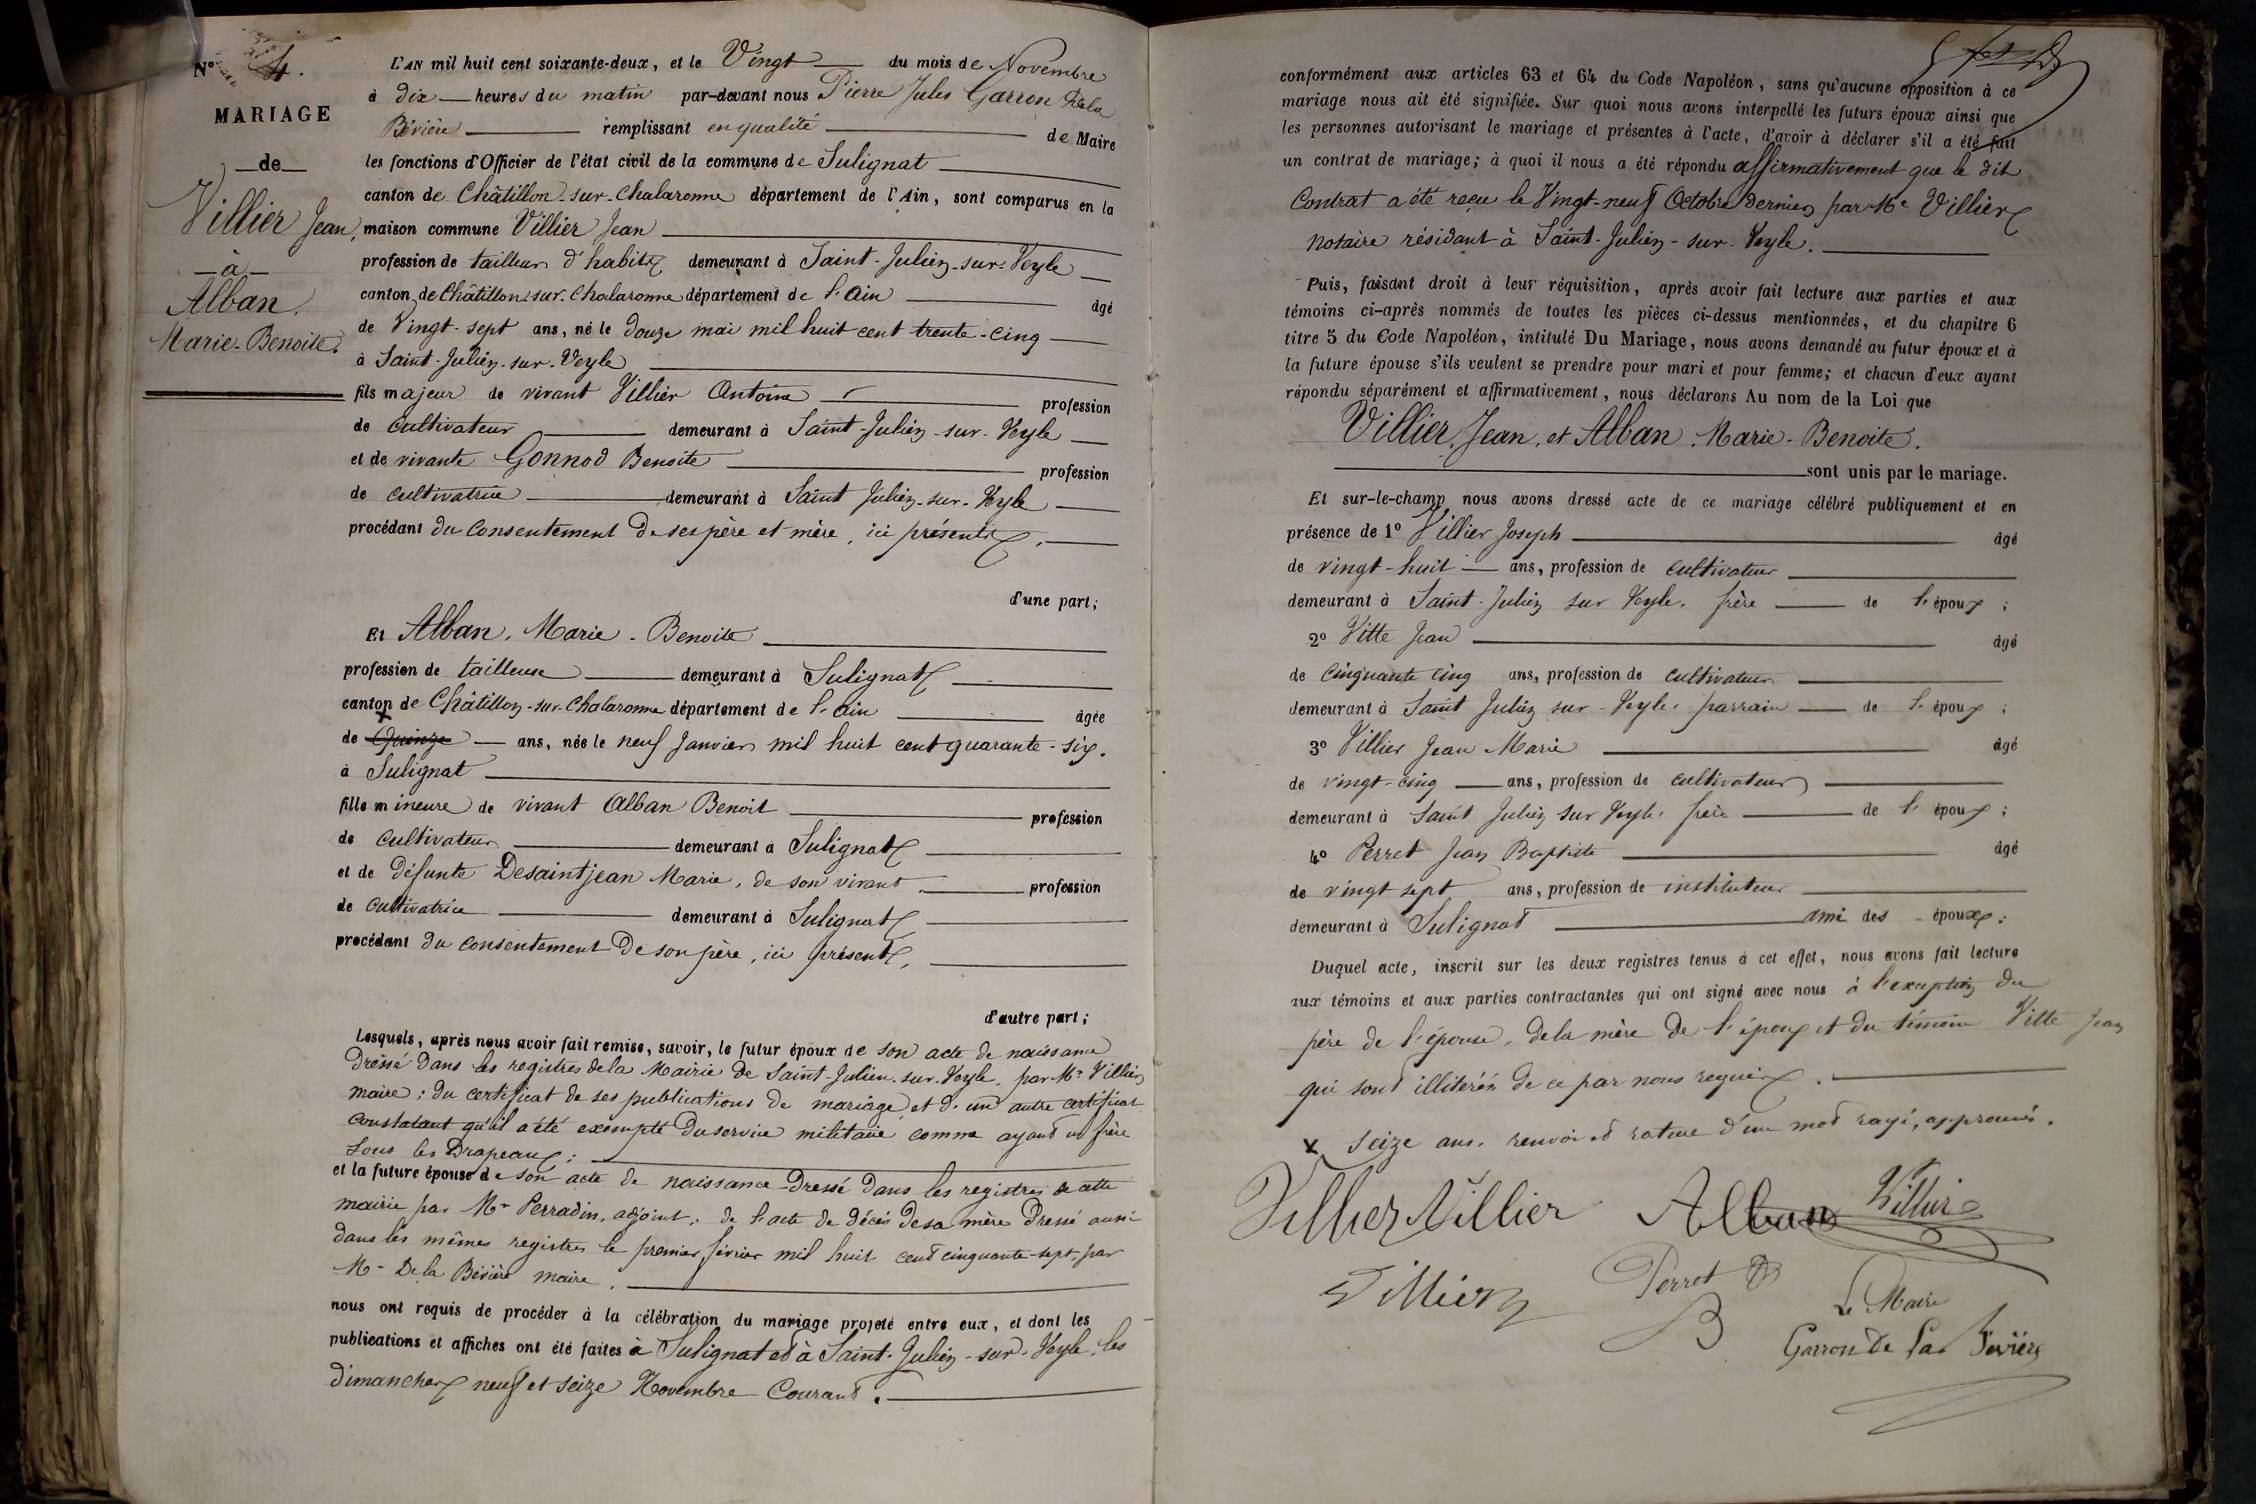 N° 4.
MARIAGE
de
Villier Jean,
à
Alban
Marie-Benoite.
L'AN mil huit cent soixante-deux, et le Vingt du mois de Novembre
à dix heures du matin par-devant nous Pierre Jules Garron De la
Bévière remplissant en qualité de Maire
les fonctions d'Officier de l'état civil de la commune de Sulignat
canton de Châtillon-sur-Chalaronne département de l'Ain, sont comparus en la
maison commune Villier Jean
profession de tailleur d'habits demeurant à Saint-Julien-sur-Veyle
canton de Châtillon sur Chalaronne département de l'ain âgé
de Vingt-sept ans, né le douze mai mil huit cent trente-cinq
à Saint-Julien-sur-Veyle
fils majeur de vivant Villier Antoine profession
de cultivateur demeurant à Saint-Julien-sur-Veyle
et de vivante Gonnod Benoite profession
de cultivatrice demeurant à Saint Julien-sur-Veyle
procédant du consentement de ses père et mère, ici présents.
d'une part;
Et Alban, Marie-Benoite
profession de tailleuse demeurant à Sulignat
canton de Châtillon-sur-Chalaronne département de l'ain âgée
x
de Quinze ans, née le neuf Janvier mil huit cent quarante-six.
à Sulignat
fille mineure de vivant Alban Benoit profession
de cultivateur demeurant à Sulignat
et de défunte Desaintjean Marie, de son vivant profession
de cultivatrice demeurant à Sulignat
procédant du consentement de son père, ici présent,
d'autre part;
Lesquels, après nous avoir fait remise, savoir, le futur époux de son acte de naissance
dressé dans les registres de la Mairie de Saint-Julien-sur-Veyle, par Mr Villier
maire; du certificat de ses publications de mariage et d'un autre certificat
constatant qu'il a été exempté du service militaire comme ayant un frère
sous les Drapeaux;
et la future épouse de son acte de naissance dressé dans les registres de cette
mairie par Mr Perradin, adjoint; de l'acte de décès de sa mère dressé aussi
dans les mêmes registres le premier février mil huit cent cinquante-sept, par
Mr De la Bévière maire.
nous ont requis de procéder à la célébration du mariage projeté entre eux, et dont les
publications et affiches ont été faites à Sulignat et à Saint-Julien-sur-Veyle, les
dimanches neuf et seize Novembre Courant.
conformément aux articles 63 et 64 du Code Napoléon, sans qu'aucune opposition à ce
mariage nous ait été signifiée. Sur quoi nous avons interpellé les futurs époux ainsi que
les personnes autorisant le mariage et présentes à l'acte, d'avoir à déclarer s'il a été fait
un contrat de mariage; à quoi il nous a été répondu affirmativement que le dit
Contrat a été reçu le Vingt-neuf Octobre dernier par Me Villier
notaire résidant à Saint-Julien-sur-Veyle.
Puis, faisant droit à leur réquisition, après avoir fait lecture aux parties et aux
témoins ci-après nommés de toutes les pièces ci-dessus mentionnées, et du chapitre 6
titre 5 du Code Napoléon, intitulé Du Mariage, nous avons demandé au futur époux et à
la future épouse s'ils veulent se prendre pour mari et pour femme; et chacun d'eux ayant
répondu séparément et affirmativement, nous déclarons Au nom de la Loi que
Villier, Jean, et Alban, Marie-Benoite.
sont unis par le mariage.
Et sur-le-champ, nous avons dressé acte de ce mariage célébré publiquement et en
présence de 1° Villier Joseph âgé
de vingt-huit ans, profession de cultivateur
demeurant à Saint-Julien sur Veyle, frère de l'époux;
2° Vitte Jean âgé
de cinquante cinq ans, profession de cultivateur
demeurant à Saint Julien sur-Veyle, parrain de l'époux;
3° Villier Jean Marie âgé
de vingt-cinq ans, profession de cultivateur
demeurant à Saint Julien sur Veyle, frère de l'époux;
4° Perret Jean Baptiste âgé
de vingt sept ans, profession de instituteur
demeurant à Sulignat ami des époux;
Duquel acte, inscrit sur les deux registres tenus à cet effet, nous avons fait lecture
aux témoins et aux parties contractantes qui ont signé avec nous à l'exception du
père de l'épouse, de la mère de l'époux et du témoin Vitte Jean
qui sont illitérés de ce par nous requis.
x Seize ans, renvoi et rature d'un mot rayé, approuvés.
Villier Villier Alban Villier
Villier Perret JB
Le Maire
Garron De La Bévière